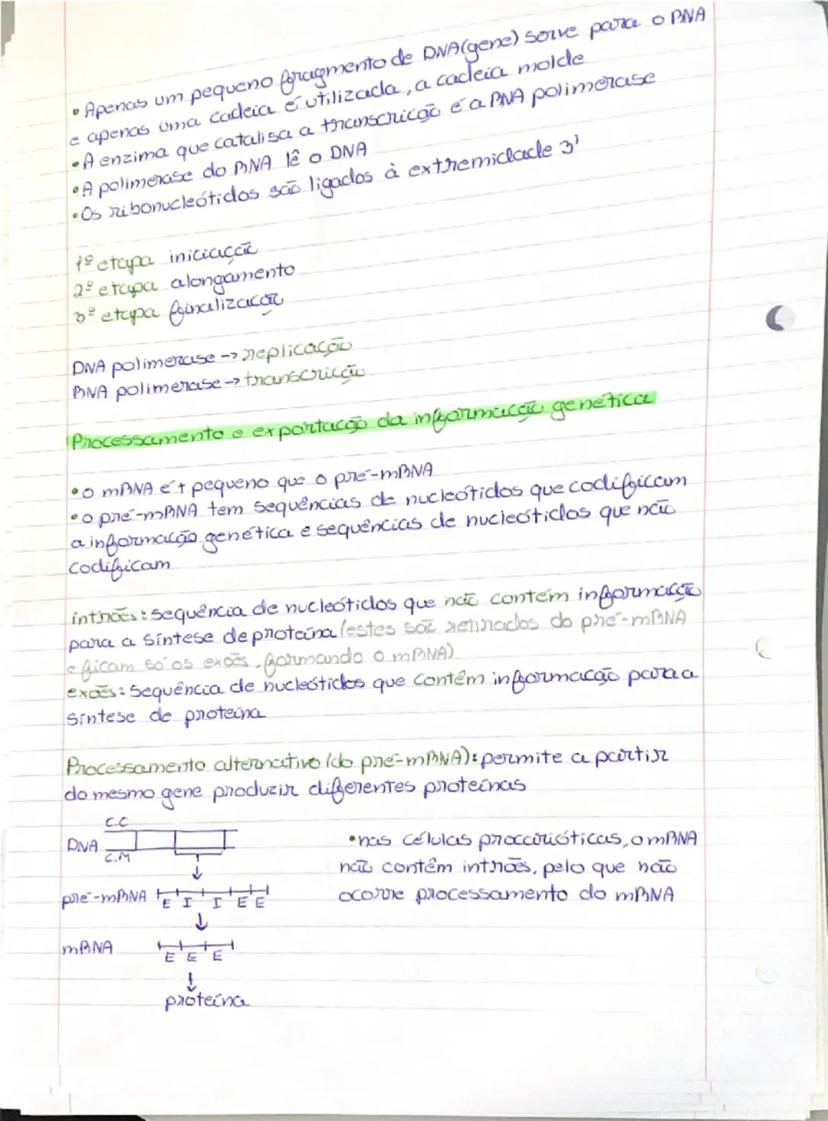 • Apenas um pequeno fragmento de DNA (gene) serve para o RNA
e apenas uma cadeia é utilizada, a cadeia molde
• A enzima que catalisa a transcrição é a RNA polimerase
• A polimerase do RNA lê o DNA
• Os ribonucleótidos são ligados à extremidade 3'
1º etapa iniciação
2º etapa alongamento
3º etapa finalização
DNA polimerase -> replicação
RNA polimerase -> transcrição
Processamento e exportação da informação genética
• o mRNA é + pequeno que o pré-mRNA
• o pré-mRNA tem sequências de nucleótidos que codificam
a informação genética e sequências de nucleótidos que não
codificam
intrões: sequência de nucleótidos que não contém informação
para a síntese de proteína (estes são retirados do pré-mRNA
e ficam só os exões, formando o mRNA)
exões: sequência de nucleótidos que contêm informação para a
síntese de proteína
Processamento alternativo (do pré-mRNA): permite a partir
do mesmo gene produzir diferentes proteínas
C.C
DNA
C.M
pré-mRNA E I I E E
mRNA E E E
proteína
• nas células procarióticas, o mRNA
não contêm intrões, pelo que não
ocorre processamento do mRNA